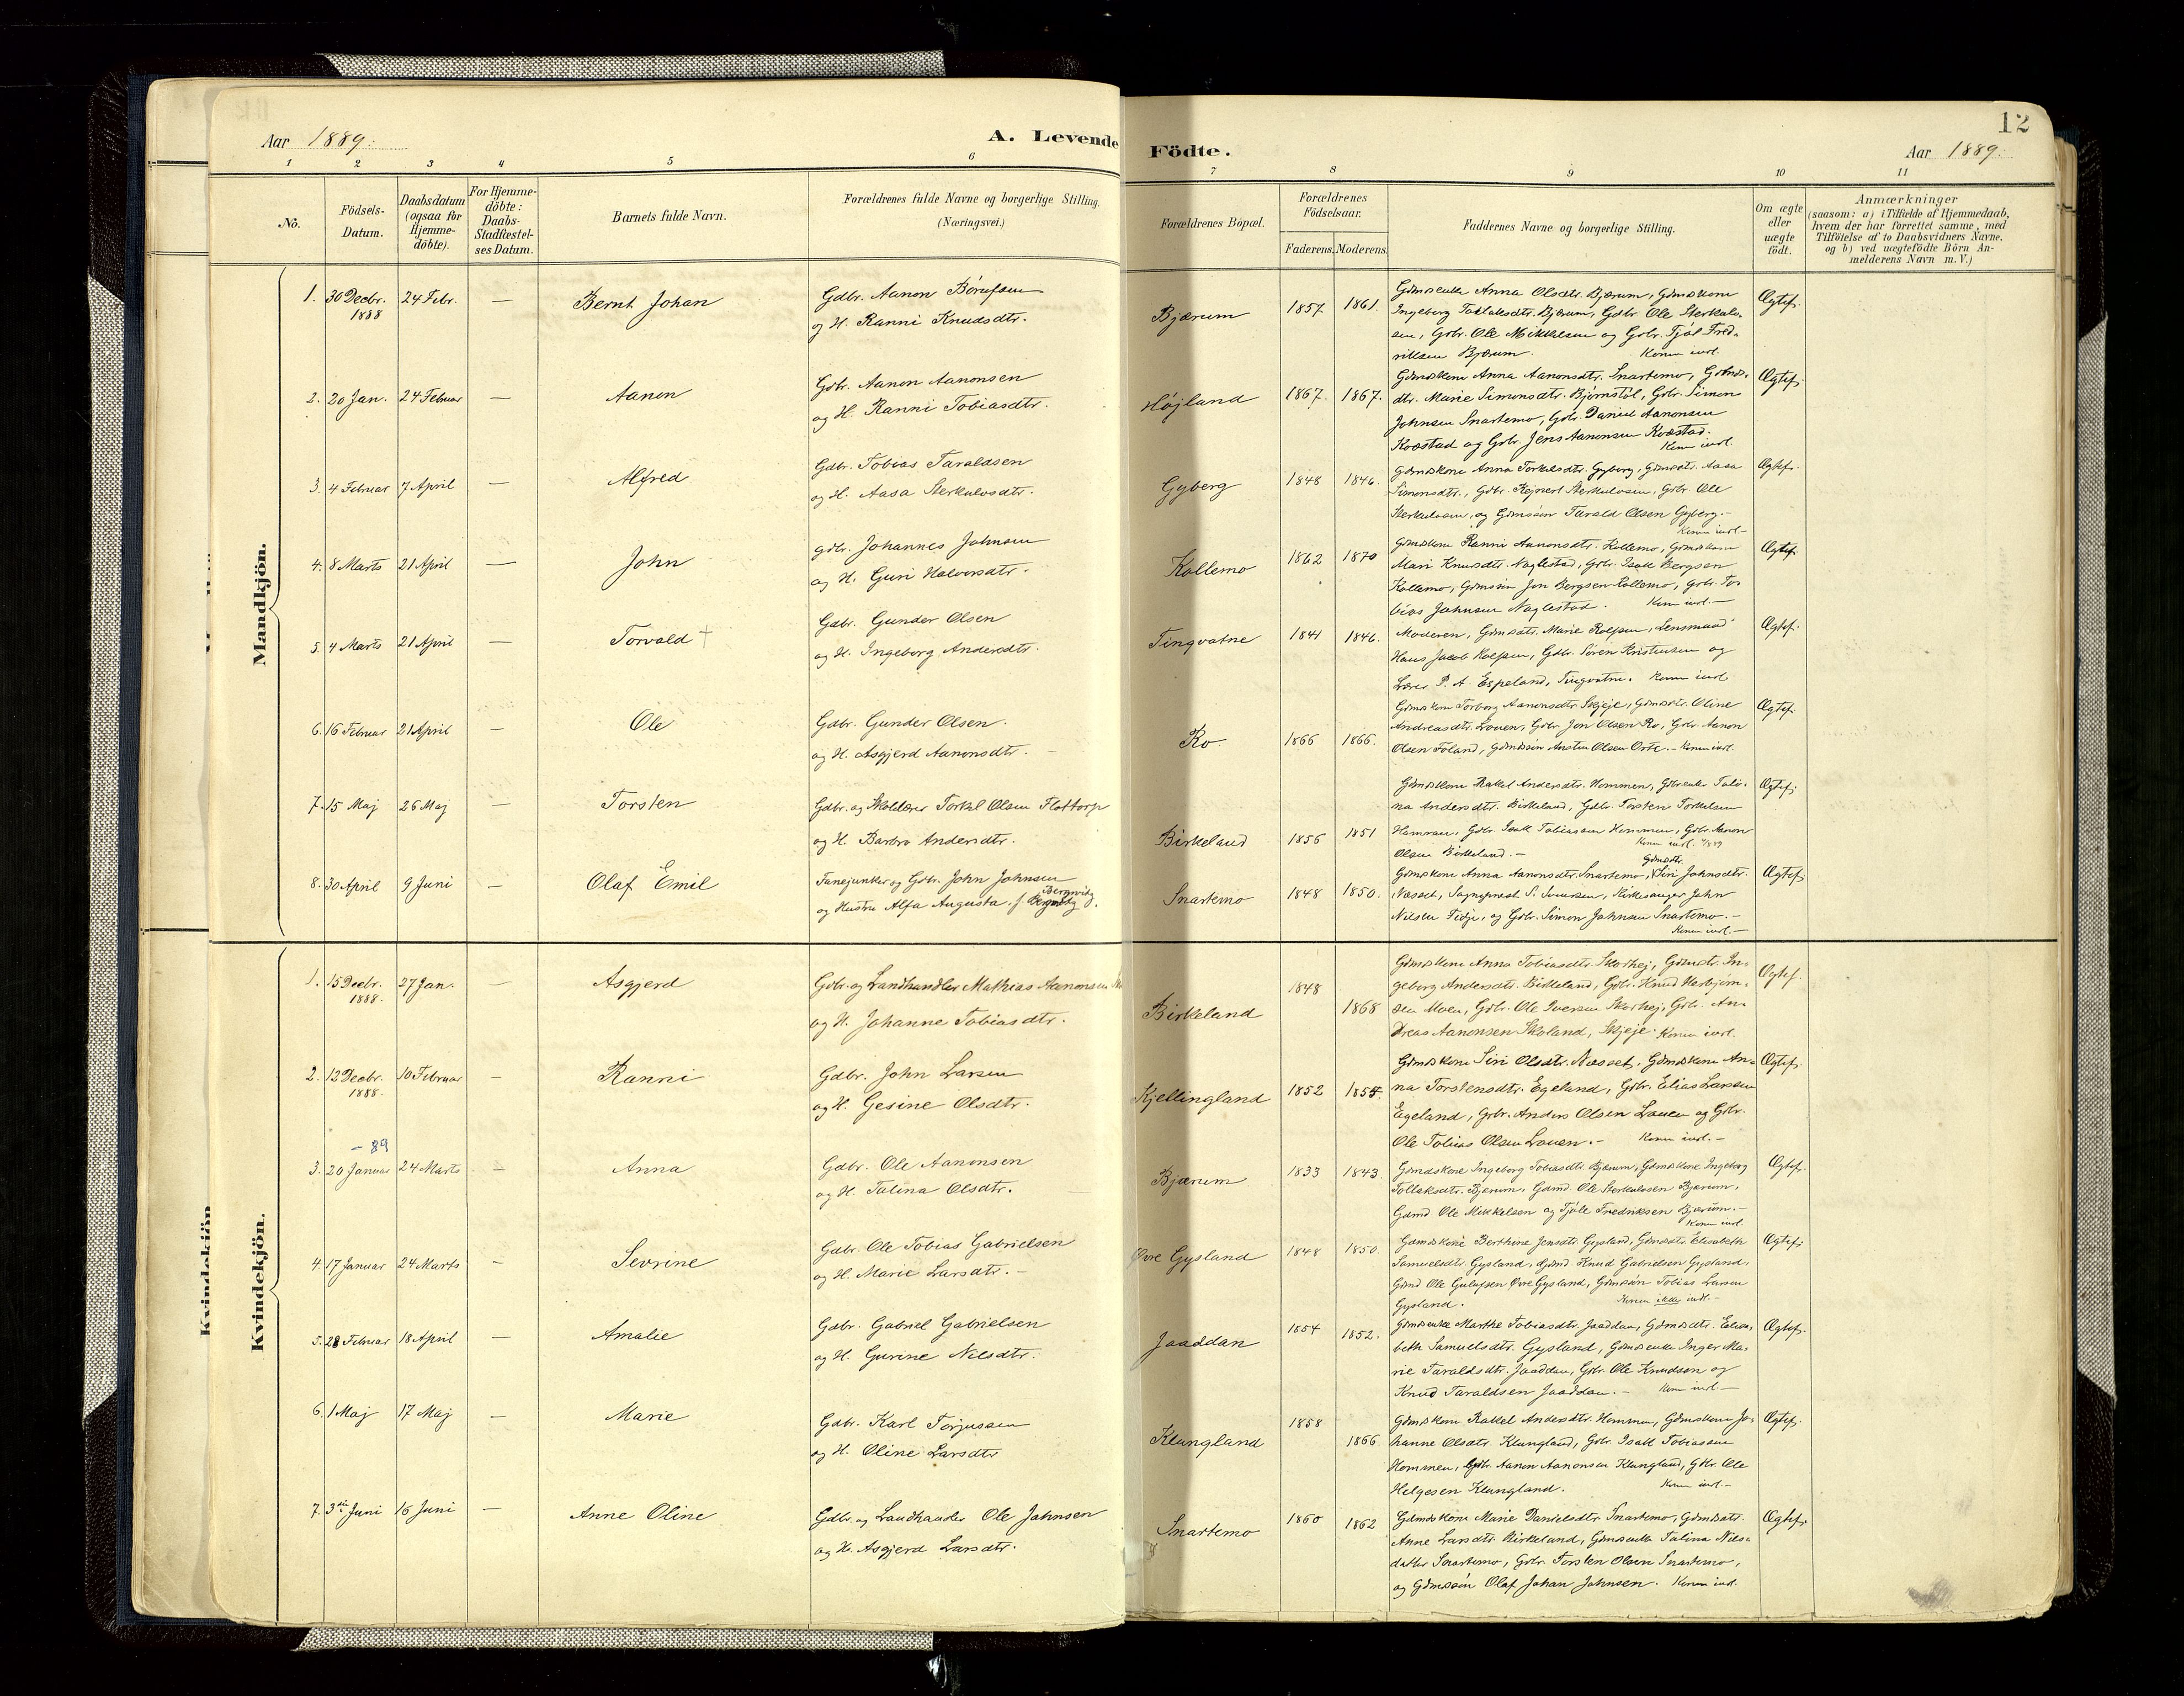 12
Aar 1889. A. Levende Födte. Aar 1889.
1 2 3 4 5 6 7 8 9 10 11
No.
Födsels-
Datum.
Daabsdatum
(ogsaa for
Hjemme-
döbte).
For Hjemme-
döbte:
Daabs-
Stadfæstel-
ses Datum.
Barnets fulde Navn.
Forældrenes fulde Navne og borgerlige Stilling.
(Næringsvei.)
Forældrenes Bopæl.
Forældrenes
Födselsaar.
Faderens. Moderens.
Faddernes Navne og borgerlige Stilling.
Om ægte
eller
uægte
födt.
Anmærkninger
(saasom: a) i Tilfælde af Hjemmedaab,
hvem der har forrettet samme, med
Tilföielse af to Daabsvidners Navne,
og b) ved uægtefödte Börn An-
melderens Navn m. V.)
Mandkjön.
1. 30 Decbr. 1888 24 Febr. — Bernt Johan
Gdbr. Aanon
og H. Ranni Knudsdtr.
Bjærum 1857 1861.
Gdmdenke Anna Olsdtr. Bjærum, Gdmdskone
Ingeborg Tollaksdtr. Bjærum, Gdbr Ole Sterkuls-
sen, Gdbr. Ole Mikkelsen og Gdbr. Tjöl Fred-
riksen Bjærum. Konen indl.
Ægtef.
2. 20 Jan. 24 Februar — Aanon
Gdbr. Aanon Aanonsen
og H. Ranni Tobiasdtr.
Höjland 1867. 1867.
Gdmdskone Anna Aanonsdtr. Snartemo, Gdmds-
dtr. Marie Simonsdtr. Björnstöl, Gdbr. Simon
Johnsen Snartemo, Gdbr. Daniel Aanonsen
Kvæstad og Gdbr. Jens Aanonsen Kvæstad.
Konen indl.
Ægtef.
3. 4 Februar 7 April — Alfred
Gdbr. Tobias Taraldsen
og H. Aasa Sterkulvsdtr.
Gyberg 1848 1846.
Gdmdskone Anna Torkelsdtr. Gyberg, Gdmdsdtr. Aasa
Simonsdtr., Gdbr. Rejnert Sterkulvsen, Gdbr Ole
Sterkulvsen, og Gdmdsön Tarald Olsen Gyberg.-
Konen indl.-
Ægtef.
4. 8 Marts 21 April — John
Gdbr. Johannes Johnsen
og H. Guri Halvorsdtr.
Kollemo 1862 1870
Gdmdskone Ranni Aanonsdtr. Kollemo, Gdmdskone
Mari Knudsdtr. Naglestad, Gdbr. Isak Bergsen
Kollemo, Gdmdsön Jon Bergsen Kollemo, Gdbr. To-
bias Johnsen Naglestad. Konen indl.—
Ægtef.
5. 4 Marts 21 April — Torvald +
Gdbr. Gunder Olsen
og H. Ingeborg Andersdtr.
Tingvatne 1841 1846.
Moderen, Gdmdsdtr. Marie Rolfsen, Lensmand
Hans Jacob Rolfsen, Gdbr. Sören Kristensen og
Lærer P. A. Espeland, Tingvatne. Konen indl.
Ægtef.
6. 16 Februar 21 April — Ole
Gdbr. Gunder Olsen.
og H. Asgjerd Aanonsdtr. —
Ro. 1866 1866.
Gdmdskone Torborg Aanonsdtr. Skjeje, Gdmdsdtr. Oline
Andreasdtr. Louen, Gdbr. Jon Olsen Ro, Gdbr. Aanon
Olsen Foland, Gdmdsön Ansten Olsen Orte.- Konen indl.
Ægtef.
7. 15 Maj 26 Maj — Torsten
Gdbr. og Skolelærer Torkel Olsen Flottorp
og H. Barbro Andersdtr.
Birkeland 1856 1851
Gdmdskone Rakel Andersdtr. Hommen, Gdbrenke Tali-
na Andersdtr. Birkeland, Gdbr. Torsten Torkelsen
Hamran, Gdbr. Isak Tobiassen Hommen, Gdbr. Aanon
Olsen Birkeland.- Konen indl.
Ægtef.
8. 30 April 9 Juni — Olaf Emil
Fanejunker og Gdbr. John Johnsen
og Hustru Alfa Augusta f. Bergwitz.
Snartemo 1848 1850.
Gdmdskone Anna Aanonsdtr. Snartemo, Gdmdsdtr. Siri Johnsdtr.
Næsset, Sognepræst S. Svensen, Kirkesanger John
Nilsen Fidje, og Gdbr. Simon Johnsen Snartemo.-
Konen indl.—
Ægtef.
Kvindekjön.
1. 15 Decbr. 1888. 27 Jan. — Asgjerd
Gdbr. og Landhandler Mathias Aanonsen
og H. Johanne Tobiasdtr.
Birkeland 1848 1868
Gdmdskone Anna Tobiasdtr. Skorhej, Gdmdsdtr. In-
geborg Andersdtr. Birkeland, Gdbr. Knud Herbjörn-
sen Moen, Gdbr. Ole Iversen Skorhej, Gdbr. An-
dreas Aanonsen Skoland, Skjeje. Konen indl.
Ægtef.
2. 12 Decbr. 1888. 10 Februar — Ranni
Gdbr. John Larsen
og H. Gesine Olsdtr.
Kjellingland 1852 1855.
Gdmdskone Siri Olsdtr. Næsset, Gdmdskone An-
na Torstensdtr. Egeland, Gdbr. Elias Larsen
Egeland, Gdbr. Anders Olsen Louen og Gdbr.
Ole Tobias Olsen Louen.- Konen indl.-
Ægtef.
- 89
3. 20 Januar 24 Marts — Anna
Gdbr. Ole Aanonsen
og H. Talina Olsdtr.
Bjærum 1833 1843.
Gdmdskone Ingeborg Tobiasdtr. Bjærum, Gdmdskone Ingeborg
Tollaksdtr. Bjærum, Gdmd Ole Sterkulvsen Bjærum,
Gdmd Ole Mikkelsen og Tjöle Fredriksen Bjærum.-
Konen indl.
Ægtef.
4. 17 Januar 24 Marts — Sevrine
Gdbr. Ole Tobias Gabrielsen
og H. Marie Larsdtr.-
Övre Gysland 1848 1850.
Gdmdskone Berthine Jensdtr. Gysland, Gdmdsdtr. Elisabeth
Samuelsdtr Gysland, Gdmd Knud Gabrielsen Gysland,
Gdmd Ole Gulufsen Övre Gysland, Gdmdsön Tobias Larsen
Gysland. Konen ikke indl.-
Ægtef.
5. 28 Februar 18 April — Amalie
Gdbr. Gabriel Gabrielsen
og H. Gurine Nilsdtr.
Jaaddan 1854 1852.
Gdmdsenke Marthe Tobiasdtr. Jaaddan, Gdmdsdtr. Elisa-
beth Samuelsdtr. Gysland, Gdmdsenke Inger Ma-
rie Taraldsdtr. Jaaddan, Gdbr. Ole Knudsen og
Knud Taraldsen Jaaddan.- Konen indl.—
Ægtef.
6. 1 Maj 17 Maj — Marie
Gdbr. Karl Torjussen
og H. Oline Larsdtr
Klungland 1858 1866
Gdmdskone Rakel Andersdtr. Hommen, Gdmdskone Jo-
hanne Olsdtr. Klungland, Gdbr. Isak Tobiassen
Hommen, Gdbr. Aanon Aanonsen Klungland, Gdbr. Ole
Helgesen Klungland. Konen indl.-
Ægtef.
7. 3die Juni 16 Juni — Anne Oline
Gdbr. og Landhandler Ole Johnsen
og H. Asgjerd Larsdtr.
Snartemo 1860 1862
Gdmdskone Marie Danielsdtr Snartemo, Gdmdsdtr.
Anne Larsdtr. Birkeland, Gdmdsenke Talina Niels-
datter Snartemo, Gdbr. Torsten Olsen Snartemo,
og Gdmdsön Olaf Johan Johnsen. Konen indl.
Ægtef.